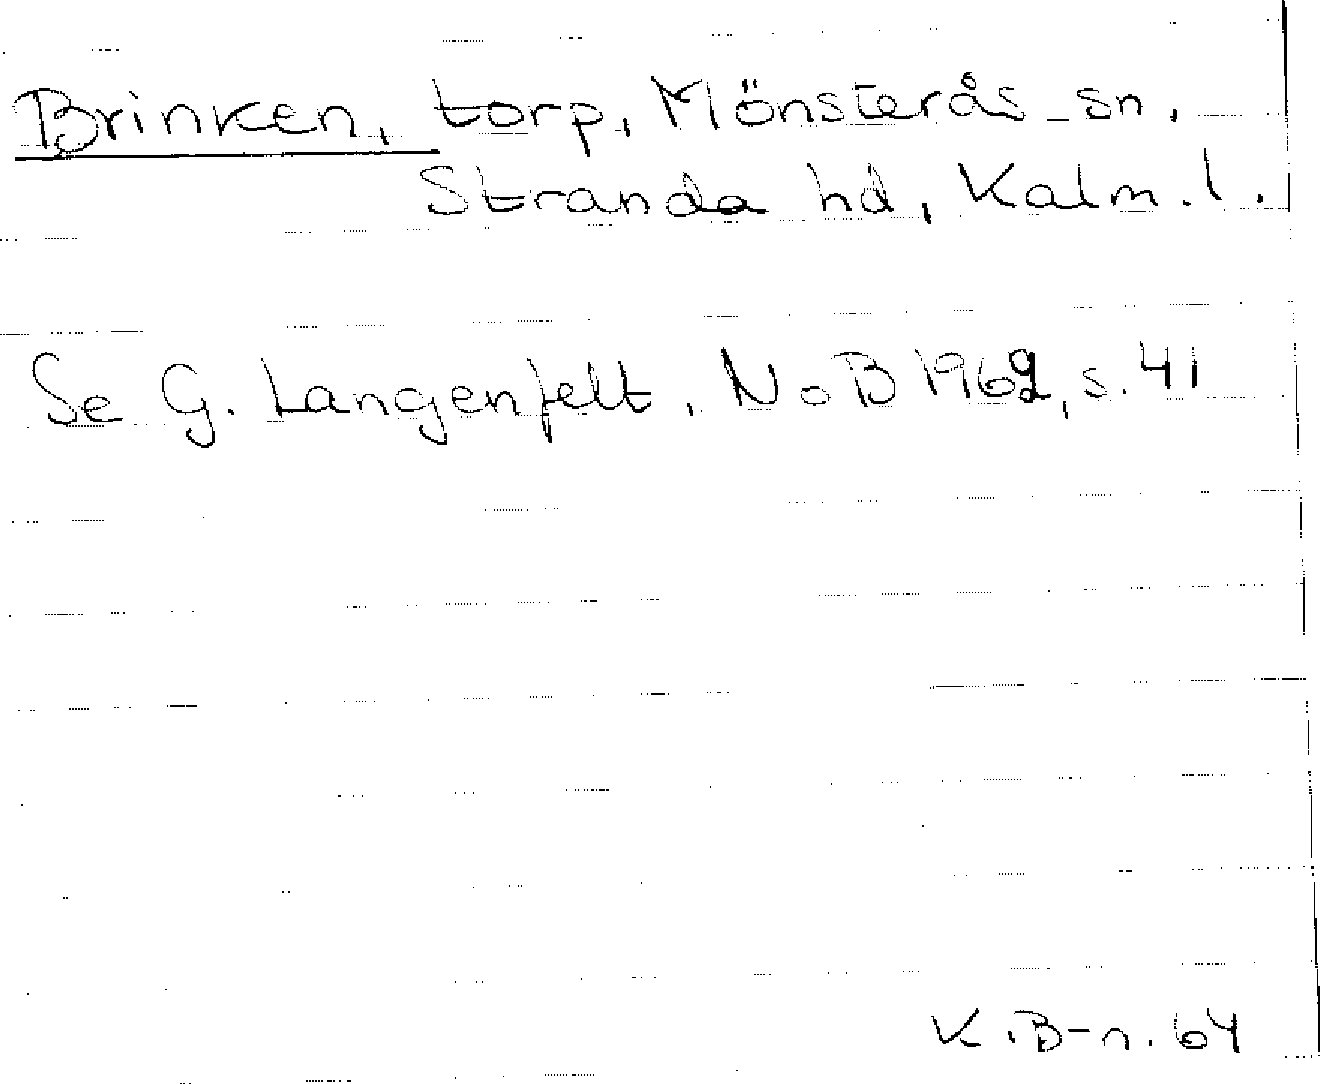 Brinken, torp, Mönsterås sn,
Stranda hd, Kalm. l.
Se G. Langenfelt, NoB 1962, s. 41
K. B-n. 64